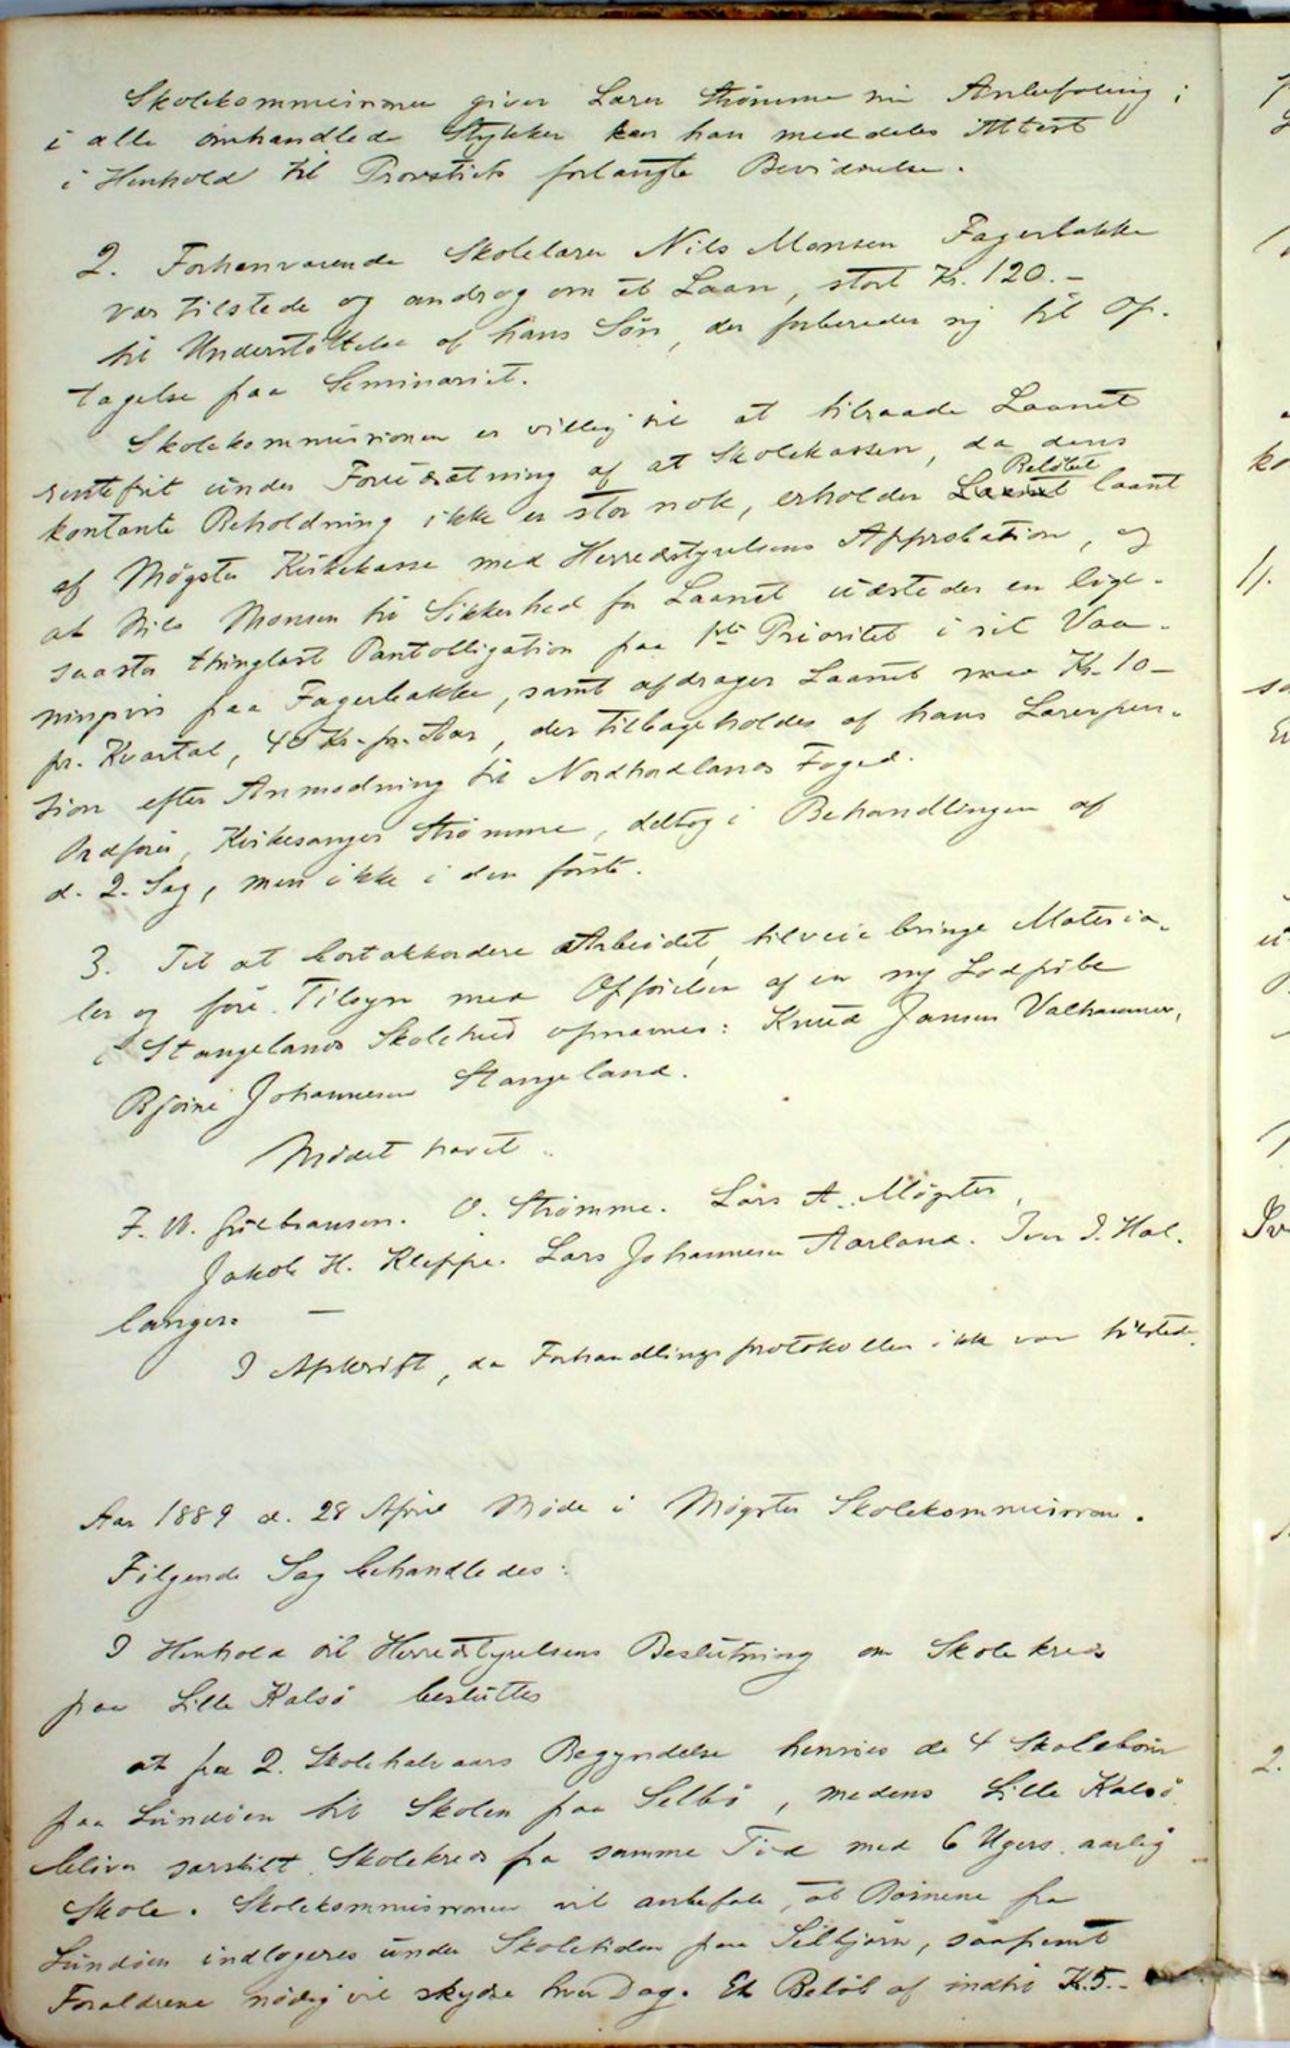 Skolekommissionen giver Lærer Strømme sin Anbefaling i
i alle omhandlede Stykker kan han meddeles Attest
i Henhold til Provstiets forlangte Bevidnelse.
2. Forhenværende Skolelærer Nils Monsen Fagerbakke
var tilstede og androg om et Laan, stort Kr. 120.-
til Understøttelse af hans Søn, der forbereder sig til Op-
tagelse paa Seminariet.
Skolekommissionen er villig til at tilraade Laanet
rentefrit under Forudsætning af at Skolekassen, da dens
kontante Beholdning ikke er stor nok, erholder Beløbet laant
af Møgster Kirkekasse med Herredstyrelsens Approbation, og
at Nils Monsen til Sikkerhed for Laanet udsteder en lige-
saa stor thinglæst Pantobligation paa 1ste Prioritet i sit Vaa-
ningshus paa Fagerbakke, samt afdrager Laanet med Kr. 10-
pr. Kvartal, 40 Kr. pr. Aar, der tilbageholdes af hans Lærerpen-
sion efter Anmodning til Nordhordlands Foged.
Ordfører, Kirkesanger Strømme, deltog i Behandlingen af
d. 2. Sag, men ikke i den første.
3. Til at bortakkordere Arbeidet, tilveiebringe Materia-
ler og føre Tilsyn med Opførelsen af en ny Lodpibe
i Stangelands Skolehus opnævnes: Knud Jansen Valhammer,
Bjørne Johannesen Stangeland.
Mødet hævet.
F. W. Gulbransen. O. Strømme. Lars A. Møgster,
Jakob H. Kleppe. Lars Johannesen Aarland. Iver I. Hal-
langer. —
I Afskrift, da Forhandlingsprotokollen ikke var tilstede.
Aar 1889 d. 28 April Møde i Møgster Skolekommission.
Følgende Sag behandledes:
I Henhold til Herredstyrelsens Beslutning om Skolekreds
paa Lille Kalsø besluttes
at fra 2. Skolehalvaars Begyndelse henvises de 4 Skolebørn
paa Lundøen til Skolen paa Selbø, medens Lille Kalsø
bliver særskilt Skolekreds fra samme Tid med 6 Ugers aarlig
Skole. Skolekommissionen vil anbefale, at Børnene fra
Lundøen indlogeres under Skoletiden paa Selbjørn, saafremt
Forældrene nødig vil skydse hver Dag. Et Beløb af indtil K. 5.-